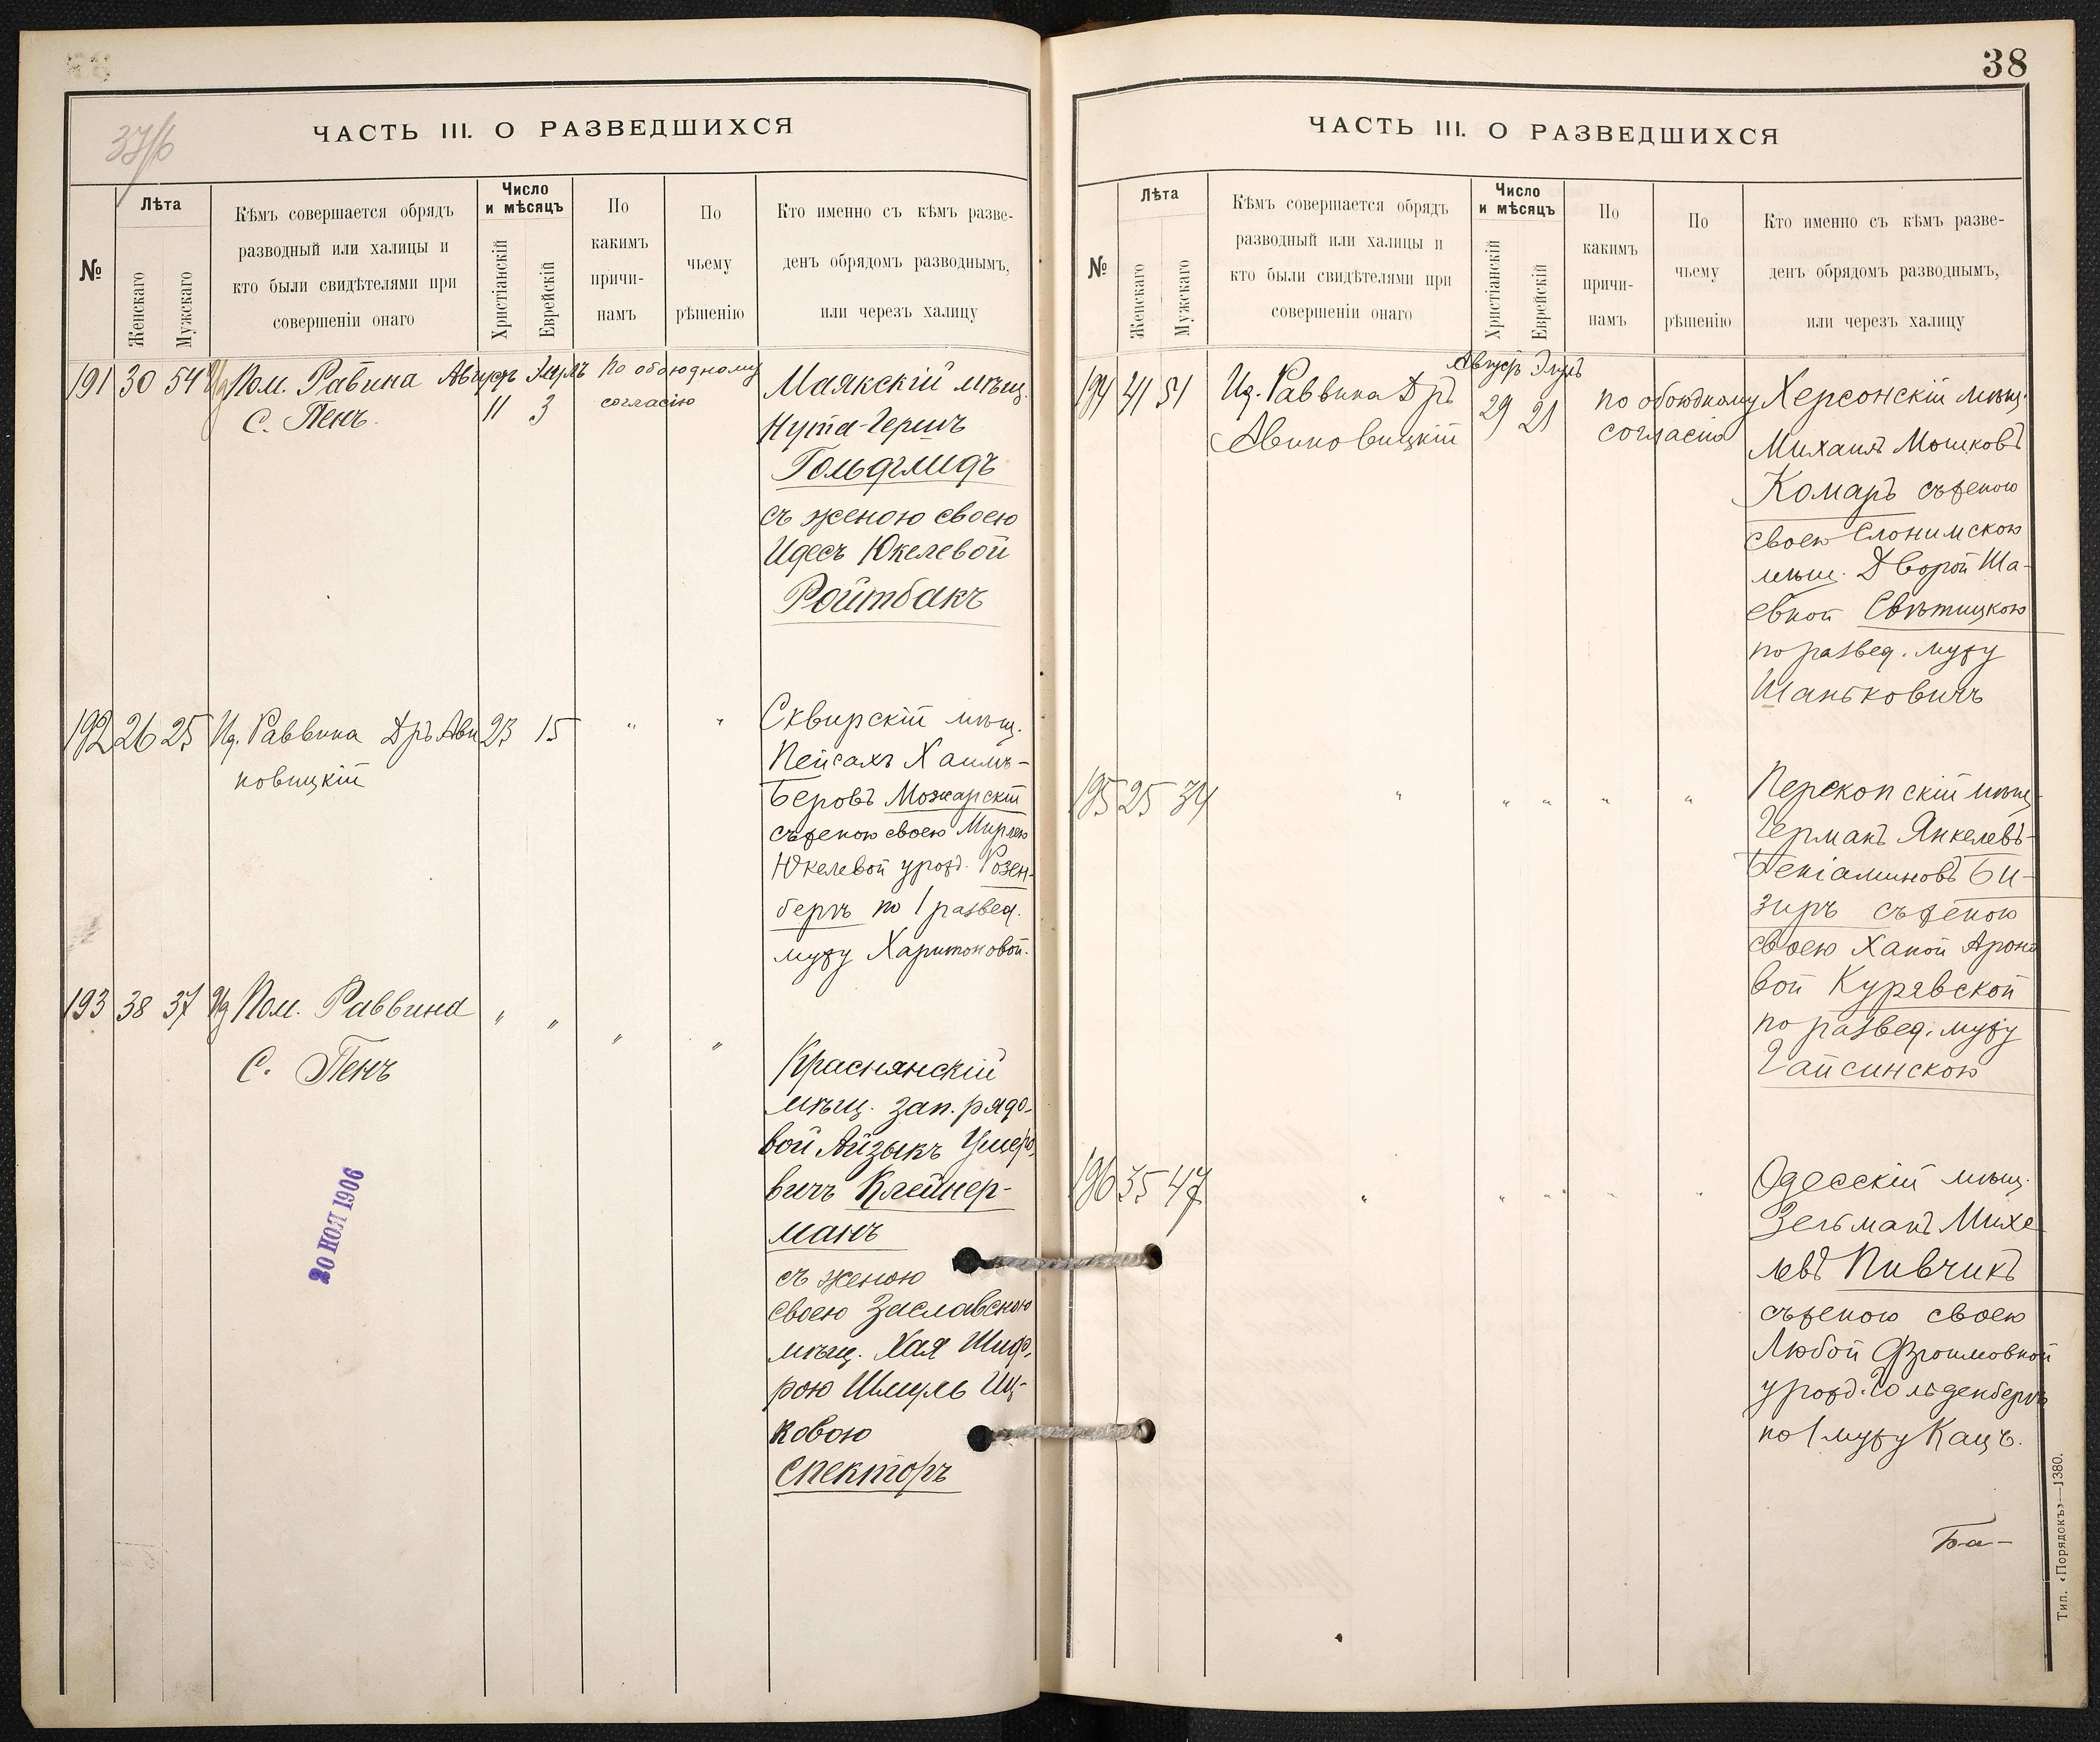 37/б
ЧАСТЬ III. О РАЗВЕДШИХСЯ
№
Лѣта
Женскаго
Мужскаго
Кѣмъ совершается обрядъ
разводный или халицы и
кто были свидѣтелями при
совершеніи онаго
Число
и мѣсяцъ
Христіанскій
Еврейскій
По
какимъ
причи-
намъ
По
чьему
рѣшенію
Кто именно съ кѣмъ разве-
денъ обрядомъ разводнымъ,
или черезъ халицу
191 30 54 Пом. Равина
С. Пенъ.
Август
11 3
По обоюдному
согласію
Маякскій мѣщ.
Нута-Гершъ
Гольдглидъ
съ женою своею
Идесъ Юкелевой
Ройтбакъ
192 26 25 Ид. Раввина Дръ Ави
новицкій
23 15 " "
Сквирскій мѣщ.
Пейсахъ Хаимъ-
Беровъ Можарскій
съ женою своею Мирлею
Юкелевой урожд. Розен-
бергъ по 1 развед.
мужу Харитоновой.
193 38 37 Пом. Раввина
С. Пенъ
" " " "
Краснянскій
мѣщ. зап. рядо-
вой Айзыкъ Ушеро
вичъ Клейнер-
манъ
съ женою
своею Заславскою
мѣщ. Хая Шиф-
рою Шмуль Иц-
ковою
Спекторъ
20 НОЯ 1906
38
ЧАСТЬ III. О РАЗВЕДШИХСЯ
№
Лѣта
Женскаго
Мужскаго
Кѣмъ совершается обрядъ
разводный или халицы и
кто были свидѣтелями при
совершеніи онаго
Число
и мѣсяцъ
Христіанскій
Еврейскій
По
какимъ
причи-
намъ
По
чьему
рѣшенію
Кто именно съ кѣмъ разве-
денъ обрядомъ разводнымъ,
или черезъ халицу
194 41 51 Ид. Раввина Дръ
Авиновицкій
Август Элулъ
29 21
по обоюдному
согласію
Херсонскій мѣщ.
Михаилъ Мошковъ
Комаръ съ женою
своею Слонимскою
мѣщ. Дворой Ша-
евной Свѣтицкою
по развед. мужу
Шаньковичъ
195 25 34 " " " " "
Перекопскій мѣщ
Германъ Янкелевъ-
Беніаминовъ Би-
зиръ съ женою
своею Ханой Ароно
вой Курявской
по развед. мужу
Гайсинскою
196 35 47 " " " " "
Одесскій мѣщ.
Зельманъ Михе
левъ Пивчикъ
съ женою своею
Любой Фроимовной
урожд. Гольденбергъ
по 1 мужу Кацъ.
Ба-
Тип. «Порядокъ»—1380.